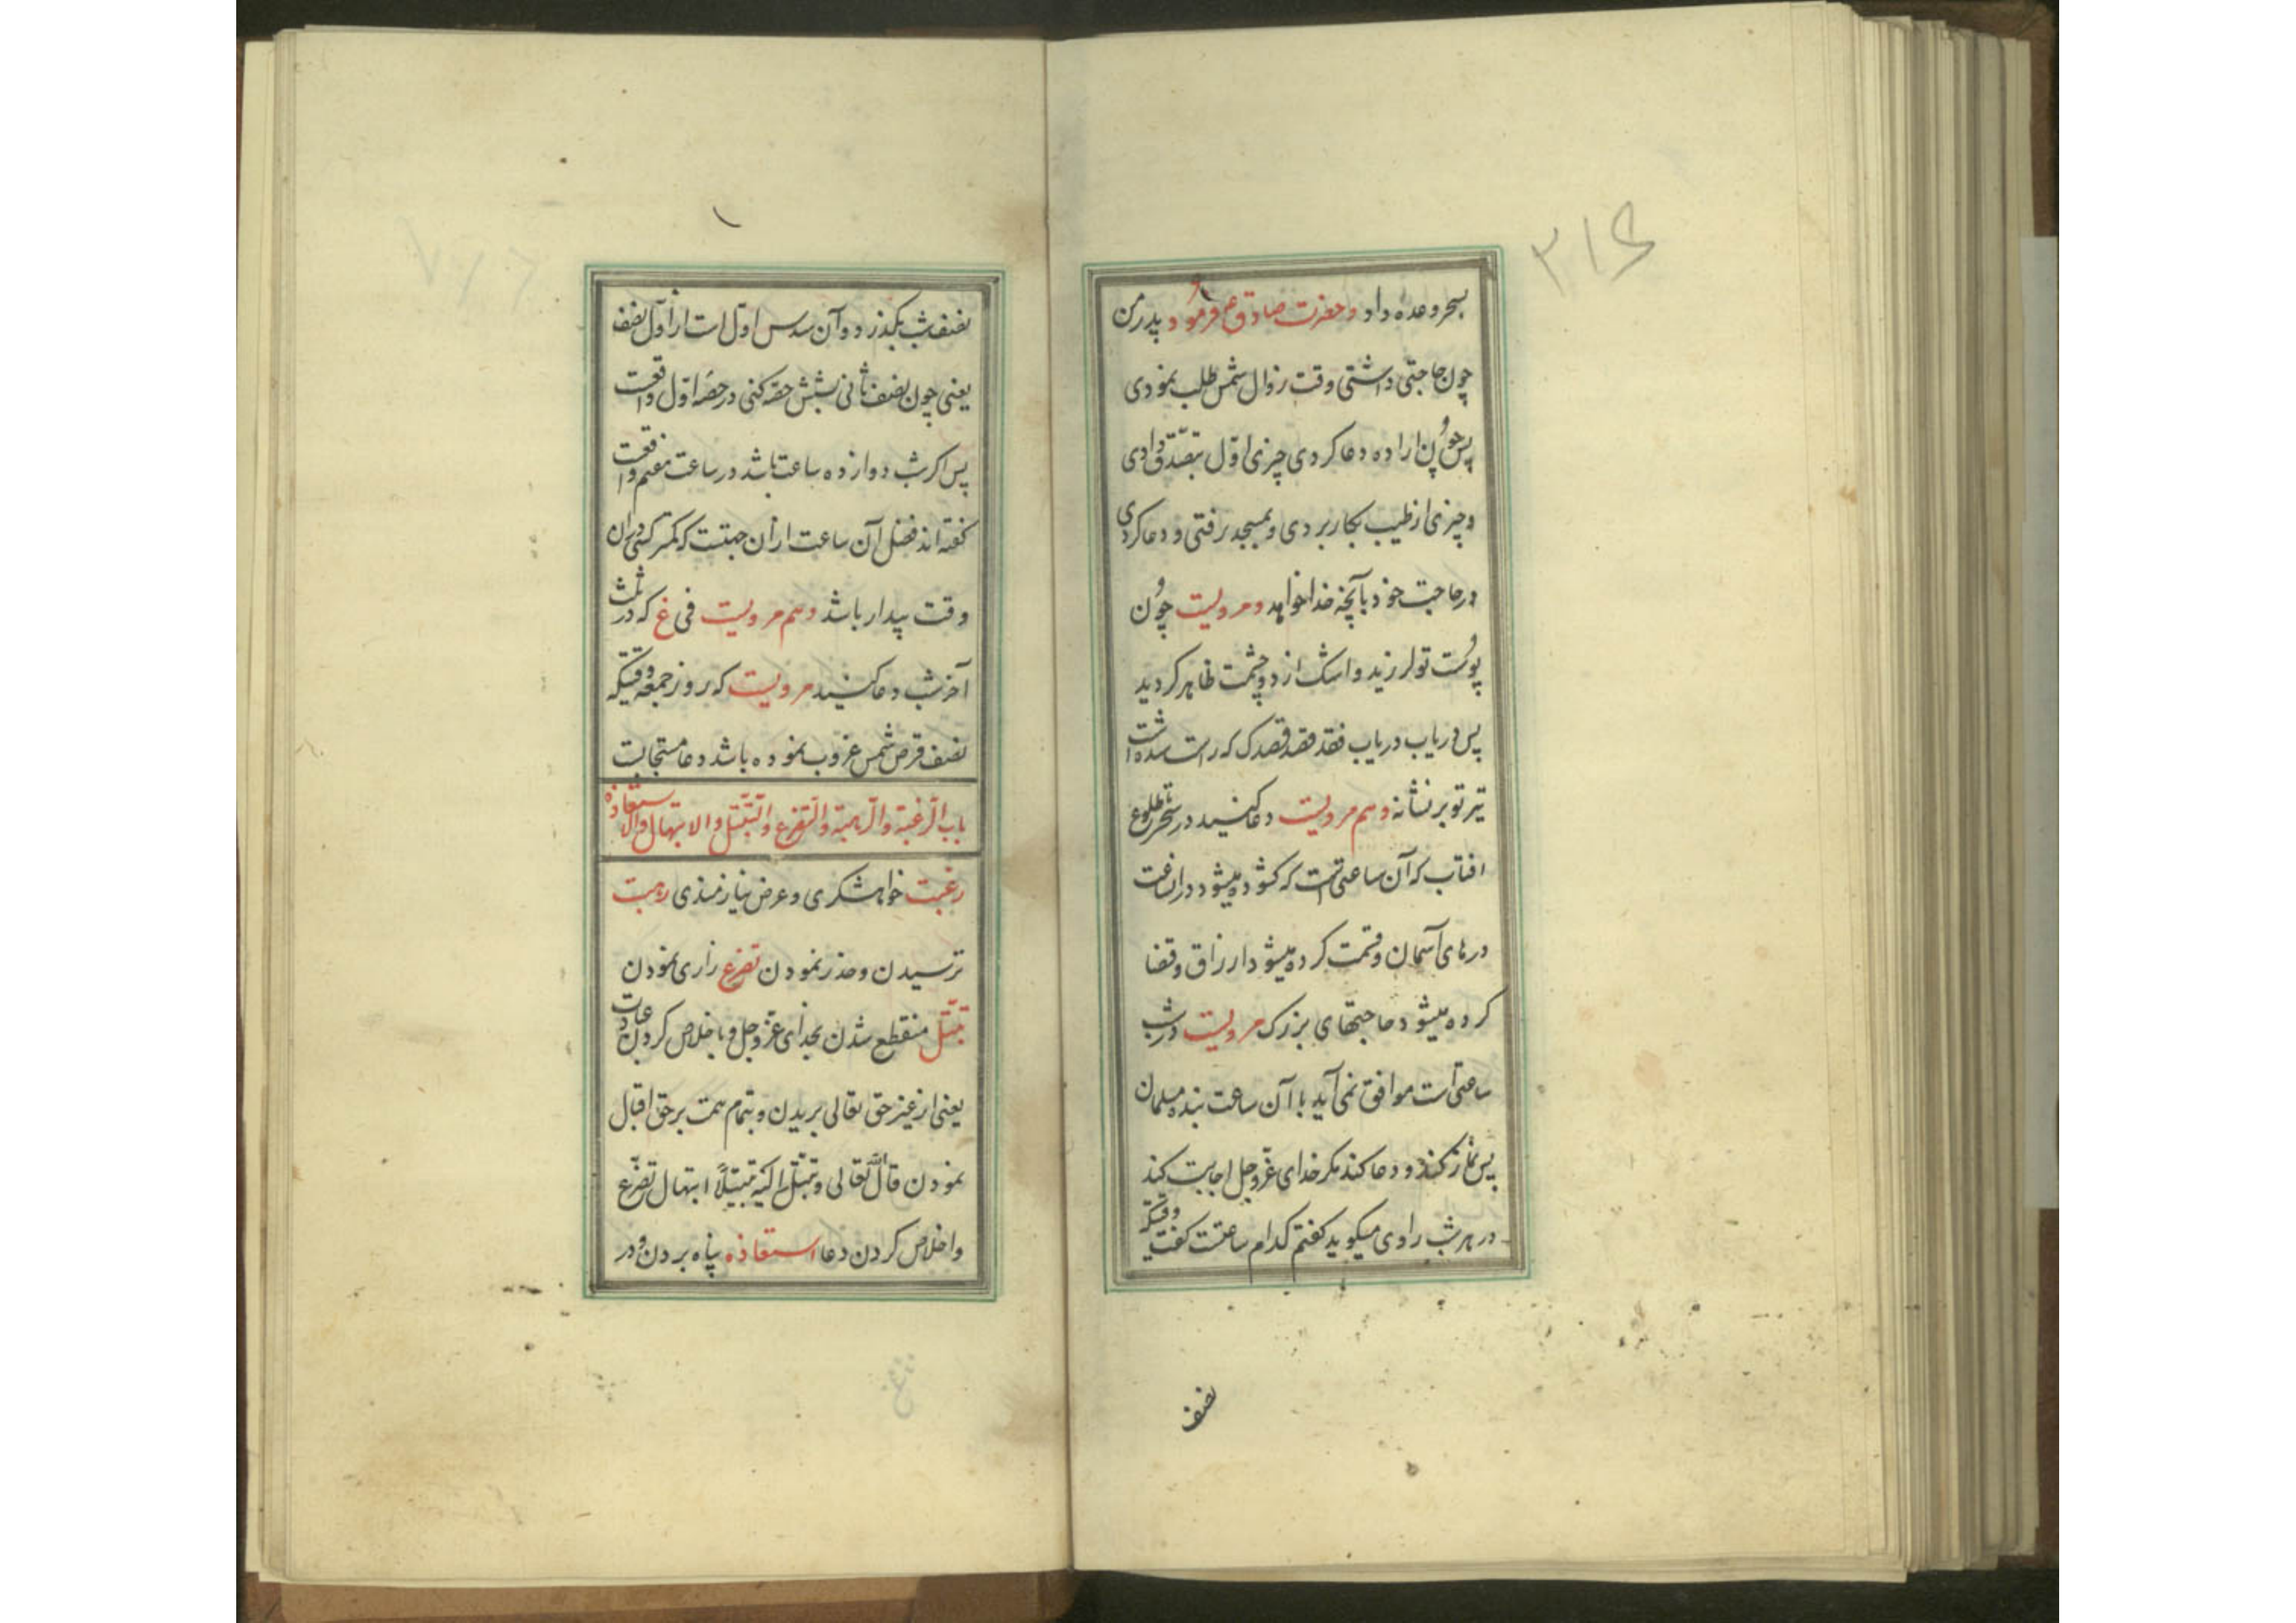 ۳۱۶
بسحر وعده داد و حضرت صادق ع فرمود پدر من
چون حاجتی داشتی وقت زوال شمس طلب نمودی
پس چون اراده دعا کردی چیزی اول بتصدق دادی
و چیزی از طیب بکار بردی و بمسجد رفتی و دعا کردی
در حاجت خود بآنچه خدا خواهد و مرویست چون
پوست تو لرزید و اشک از دو چشمت ظاهر کردید
پس دریاب دریاب فقد قصد قصدک که راست شده است
تیر تو بر نشانه و هم مرویست دعا کنید در سحر تا طلوع
افتاب که آن ساعتی است که کشوده میشود در ان ساعت
درهای آسمان و قسمت کرده میشود ارزاق و قضا
کرده میشود حاجتهای بزرک مرویست در شب
ساعتی است موافق نمی آید با آن ساعت بنده مسلمان
پس نماز کند و دعا کند مکر خدای عز و جل اجابت کند
در هر شب راوی میکوید کفتم کدام ساعتست کفت وقتیکه
نصف
۱
نصف شب بکذرد و آن سدس اول است از اول نصف
یعنی چون نصف ثانی شش حصه کنی در حصه اول واقعست
پس اکر شب دوازده ساعت باشد در ساعت هفتم واقعست
کفته اند فضل آن ساعت از آن جهتست که کمتر کسی در ان
وقت بیدار باشد و هم مرویست فی غ که در ثلث
آخر شب دعا کنید مرویست که بروز جمعه وقتیکه
نصف قرص شمس غروب نموده باشد دعا مستجابست
باب الرغبة والرهبة والتضرع والتبتل والابتهال والاستعاذه
رغبت خواهشکری و عرض نیازمندی رهبت
ترسیدن و حذر نمودن تضرع زاری نمودن
تبتل منقطع شدن بخدای عز و جل و باخلاص کردن عبادت
یعنی از غیر حق تعالی بریدن و بتمام همت بر حق اقبال
نمودن قال الله تعالی و تبتل الیه تبتیلا ابتهال تضرع
و اخلاص کردن دعا استعاذه پناه بردن و در